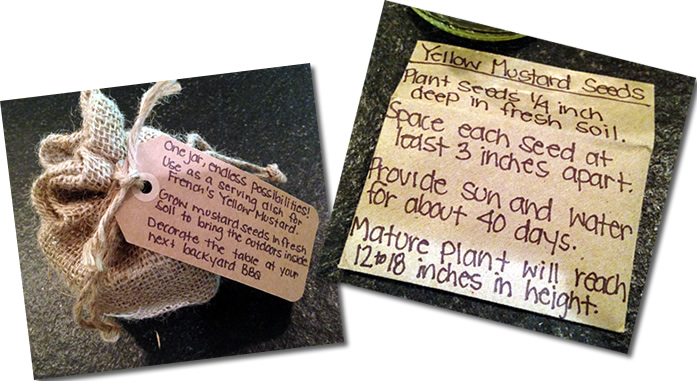 One jar, endless possibilities!
Use as a serving dish for
French's Yellow Mustard.
Grow mustard seeds in fresh
soil to bring the outdoors inside
Decorate the table at your
next backyard BBQ
Yellow Mustard Seeds
Plant seeds 1/4 inch
deep in fresh soil.
Space each seed at
least 3 inches apart.
Provide sun and water
for about 40 days.
Mature plant will reach
12 to 18 inches in height.